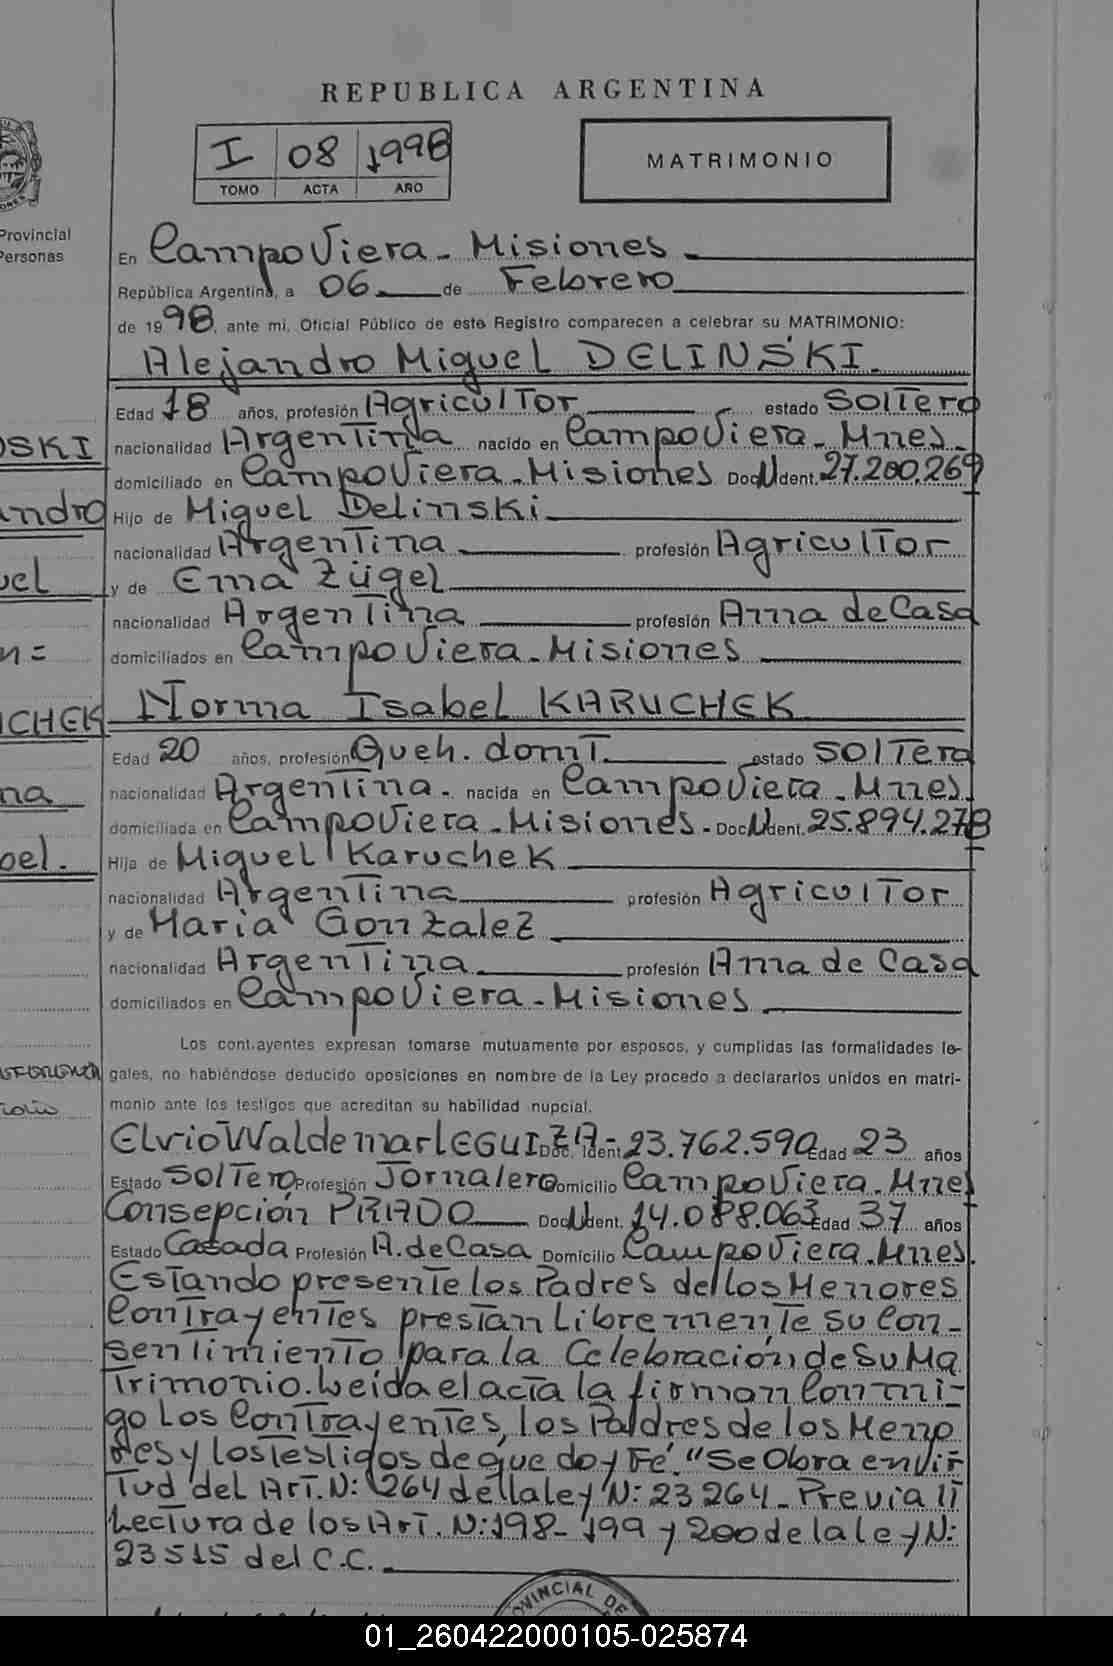 REPUBLICA ARGENTINA
I 08 1998
TOMO ACTA AÑO
MATRIMONIO
Provincial
Personas
En Campo Viera - Misiones
República Argentina, a 06 de Febrero
de 1998, ante mi, Oficial Público de este Registro comparecen a celebrar su MATRIMONIO:
Alejandro Miguel DELINSKI.
Edad 18 años, profesión Agricultor estado Soltero
OSKI nacionalidad Argentina nacido en Campo Viera - Mnes.
domiciliado en Campo Viera - Misiones Doc. N. Ident. 27.200.269
andro Hijo de Miguel Delinski
nacionalidad Argentina profesión Agricultor
uel y de Ema Zügel
nacionalidad Argentina profesión Ama de Casa
n= domiciliados en Campo Viera - Misiones
UCHEK Norma Isabel KARUCHEK
Edad 20 años, profesión Queh. domt. estado Soltera
na nacionalidad Argentina. nacida en Campo Viera - Mnes.
domiciliada en Campo Viera - Misiones - Doc. N. Ident. 25.894.278
bel. Hija de Miguel Karuchek
nacionalidad Argentina profesión Agricultor
y de Maria Gonzalez
nacionalidad Argentina profesión Ama de Casa
domiciliados en Campo Viera - Misiones
Los cont.ayentes expresan tomarse mutuamente por esposos, y cumplidas las formalidades le-
gales, no habiéndose deducido oposiciones en nombre de la Ley procedo a declararlos unidos en matri-
monio ante los testigos que acreditan su habilidad nupcial.
Elvio Waldemar LEGUIZA - Doc. Ident. 23.762.590 Edad 23 años
Estado Soltero Profesión Jornalero Domicilio Campo Viera - Mnes
Consepción PRADO Doc. N. Ident. 14.088.063 Edad 37 años
Estado Casada Profesión A. de Casa Domicilio Campo Viera. Mnes.
Estando presente los Padres de los Menores
Contrayentes prestan Libremente su Con-
sentimiento para la Celebración de Su Ma
Trimonio. Leida el acta la firman Conmi-
go Los Contrayentes, los Padres de los Meno
res y los Testigos de que doy Fé. "Se Obra en Vir
Tud del Art. N: 264 de la ley N: 23264 - Previa
Lectura de los Art. N: 198 - 199 y 200 de la ley N:
23515 del C.C.
VINCIAL DE
01_260422000105-025874